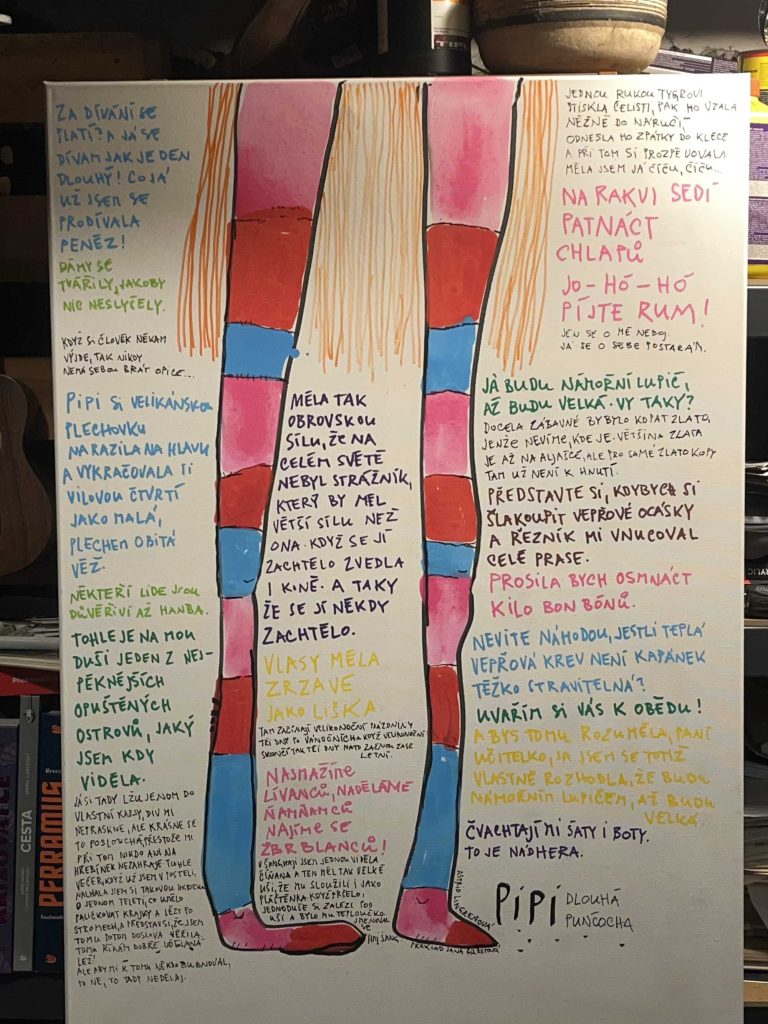 ZA DÍVÁNÍ SE
PLATÍ? A JÁ SE
DÍVÁM JAK JE DEN
DLOUHÝ! CO JÁ
UŽ JSEM SE
PRODÍVALA
PENĚZ!
DÁMY SE
TVÁŘILY, JAKOBY
NIC NESLYČELY.
KDYŽ SI ČLOVĚK NĚKAM
VYJDE, TAK NIKDY
NEMÁ SEBOU BRÁT OPICE...
PIPI SI VELIKÁNSKOU
PLECHOVKU
NARAZILA NA HLAVU
A VYKRAČOVALA SI
VILOVOU ČTVRTÍ
JAKO MALÁ,
PLECHEM OBITÁ
VĚŽ.
NĚKTEŘÍ LIDE JSOU
DŮVĚŘIVÍ AŽ HANBA.
TOHLE JE NA MOU
DUŠI JEDEN Z NEJ-
PĚKNĚJŠÍCH
OPUŠTĚNÝCH
OSTROVŮ, JAKÝ
JSEM KDY
VIDĚLA.
JÁ SI TADY LŽU JENOM DO
VLASTNÍ KAPSY, DIV MI
NEPRASKNE, ALE KRÁSNE SE
TO POSLOUCHÁ PŘESTOŽE MI
PŘI TOM NIKDO ANI NA
HŘEBÍNEK NEZAHRAJE TUHLE
VEČER, KDYŽ UŽ JSEM V POSTELI,
NALHALA JSEM SI TAKOVOU
O JEDNOM TELETI, CO UMĚLO
PALIČKOVAT KRAJKY A LÉZT PO
STROMECH, A PŘEDSTAV SI, ŽE JSEM
TOMU POTOM DOSLOVA VĚŘILA.
TOMU ŘÍKÁM DOBŘE
LEŽ!
ALE ABY MI K TOMU NĚKDO BUBNOVAL,
TO NE, TO TADY NEDĚLAJ.
MĚLA TAK
OBROVSKOU
SÍLU, ŽE NA
CELÉM SVĚTĚ
NEBYL STRÁŽNÍK,
KTERÝ BY MĚL
VĚTŠÍ SÍLU NEŽ
ONA. KDYŽ SE JÍ
ZACHTĚLO ZVEDLA
I KONĚ. A TAKY
ŽE SE JÍ NĚKDY
ZACHTĚLO.
VLASY MĚLA
ZRZAVÉ
JAKO LIŠKA
TAM ZAČÍNAJÍ VELIKONOČNÍ PRÁZDNINY
TŘI DNY PO VÁNOČNÍCH A KDYŽ VELIKONOČNÍ
SKONČÍ TAK TŘI DNY NATO ZAČNOU ZASE
LETNÍ.
NASMAŽÍME
LÍVANCŮ, NADĚLÁME
ŇAMŇAMCŮ
NAJÍME SE
ŽBRBLANCŮ!
V ŠANGHAJI JSEM JEDNOU VIDĚLA
ČÍŇANA A TEN MĚL TAK VELKÉ
UŠI, ŽE MU SLOUŽILI I JAKO
PLÁŠTĚNKA KDYŽ PRŠELO,
JEDNODUŠE SI ZALEZL POD
UŠI A BYLO MU TEPLOUČKO
JMENOVAL
SE
HAJ ŠANG
JEDNOU RUKOU TYGROVI
STISKLA ČELISTI, PAK HO VZALA
NĚŽNĚ DO NÁRUČÍ,
ODNESLA HO ZPÁTKY DO KLECE
A PŘI TOM SI PROZPĚVOVALA
MĚLA JSEM JÁ ČÍČU, ČÍČU...
NA RAKVI SEDÍ
PATNÁCT
CHLAPŮ
JO-HÓ-HÓ
PÍJTE RUM!
JEN SE O MĚ NEBOJ.
JÁ SE O SEBE POSTARÁM.
JÁ BUDU NÁMOŘNÍ LUPIČ,
AŽ BUDU VELKÁ. VY TAKY?
DOCELA ZÁBAVNÉ BY BYLO KOPAT ZLATO,
JENŽE NEVÍME, KDE JE. VĚTŠINA ZLATA
JE AŽ NA ALJAŠCE, ALE PRO SAMÉ ZLATOKOPY
TAM UŽ NENÍ K HNUTÍ.
PŘEDSTAVTE SI, KDYBYCH SI
ŠLA KOUPIT VEPŘOVÉ OCÁSKY
A ŘEZNÍK MI VNUCOVAL
CELÉ PRASE.
PROSILA BYCH OSMNÁCT
KILO BONBÓNŮ.
NEVÍTE NÁHODOU, JESTLI TEPLÁ
VEPŘOVÁ KREV NENÍ KAPÁNEK
TĚŽKO STRAVITELNÁ?
UVAŘÍM SI VÁS K OBĚDU!
A BYS TOMU ROZUMĚLA, PANÍ
UČITELKO, JÁ JSEM SE TOTIŽ
VLASTNĚ ROZHODLA, ŽE BUDU
NÁMOŘNÍM LUPIČEM, AŽ BUDU
VELKÁ
ČVACHTAJÍ MI ŠATY I BOTY.
TO JE NÁDHERA.
ASTRID LINDGRENOVÁ
PÍPÍ
DLOUHÁ
PUNČOCHA
PŘEKLAD JANA
CESTA
PERRAMUS